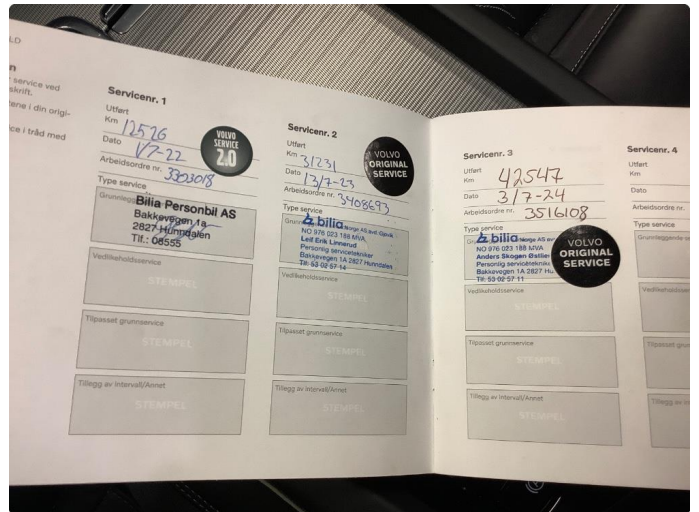 LD
n
service ved
skrift.
ene i din origi-
ce i tråd med
Servicenr. 1
Utført
Km 12526
Dato 1/7-22
Arbeidsordre nr. 3303018
Type service
VOLVO
SERVICE
2.0
Bilia Personbil AS
Bakkevegen 1a
2827 Hunndalen
Tlf.: 08555
Vedlikeholdsservice
STEMPEL
Tilpasset grunnservice
STEMPEL
Tillegg av intervall/Annet
STEMPEL
Servicenr. 2
Utført
Km 31231
Dato 13/7-23
Arbeidsordre nr. 3408693
Type service
VOLVO
ORIGINAL
SERVICE
bilia Norge AS avd. Gjøvik
NO 976 023 188 MVA
Leif Erik Linnerud
Personlig servicetekniker
Bakkevegen 1A 2827 Hunndalen
Tlf: 53 02 57 14
Vedlikeholdsservice
STEMPEL
Tilpasset grunnservice
STEMPEL
Tillegg av intervall/Annet
STEMPEL
Servicenr. 3
Utført
Km 42547
Dato 3/7-24
Arbeidsordre nr. 3516108
Type service
bilia Norge AS
NO 976 023 188 MVA
Anders Skogen
Personlig servicetekniker
Bakkevegen 1A 2827 Hu
Tlf: 53 02 57 11
VOLVO
ORIGINAL
SERVICE
Vedlikeholdsservice
STEMPEL
Tilpasset grunnservice
STEMPEL
Tillegg av intervall/Annet
STEMPEL
Servicenr. 4
Utført
Km
Dato
Arbeidsordre nr.
Type service